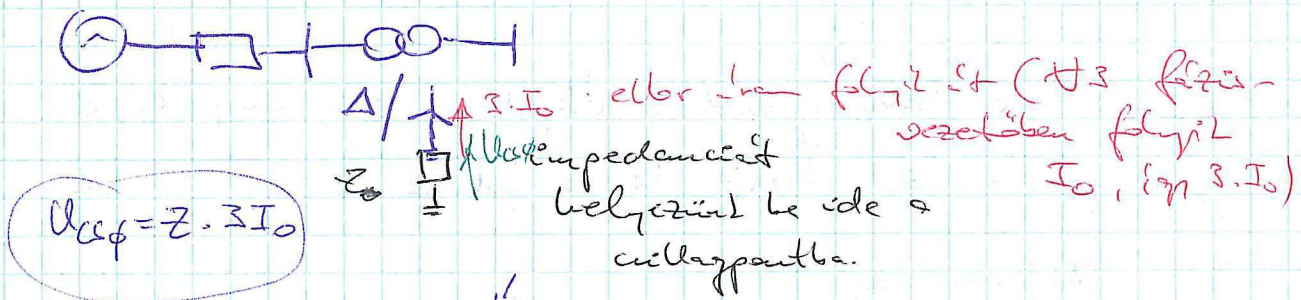 Δ/ 3·I₀ · ekkor áram folyik át (∀3 fázis-
vezetőben folyik
I₀, így 3·I₀)
Z U_csp impedanciát
helyezünk be ide a
csillagpontba.
U_csp = Z · 3I₀